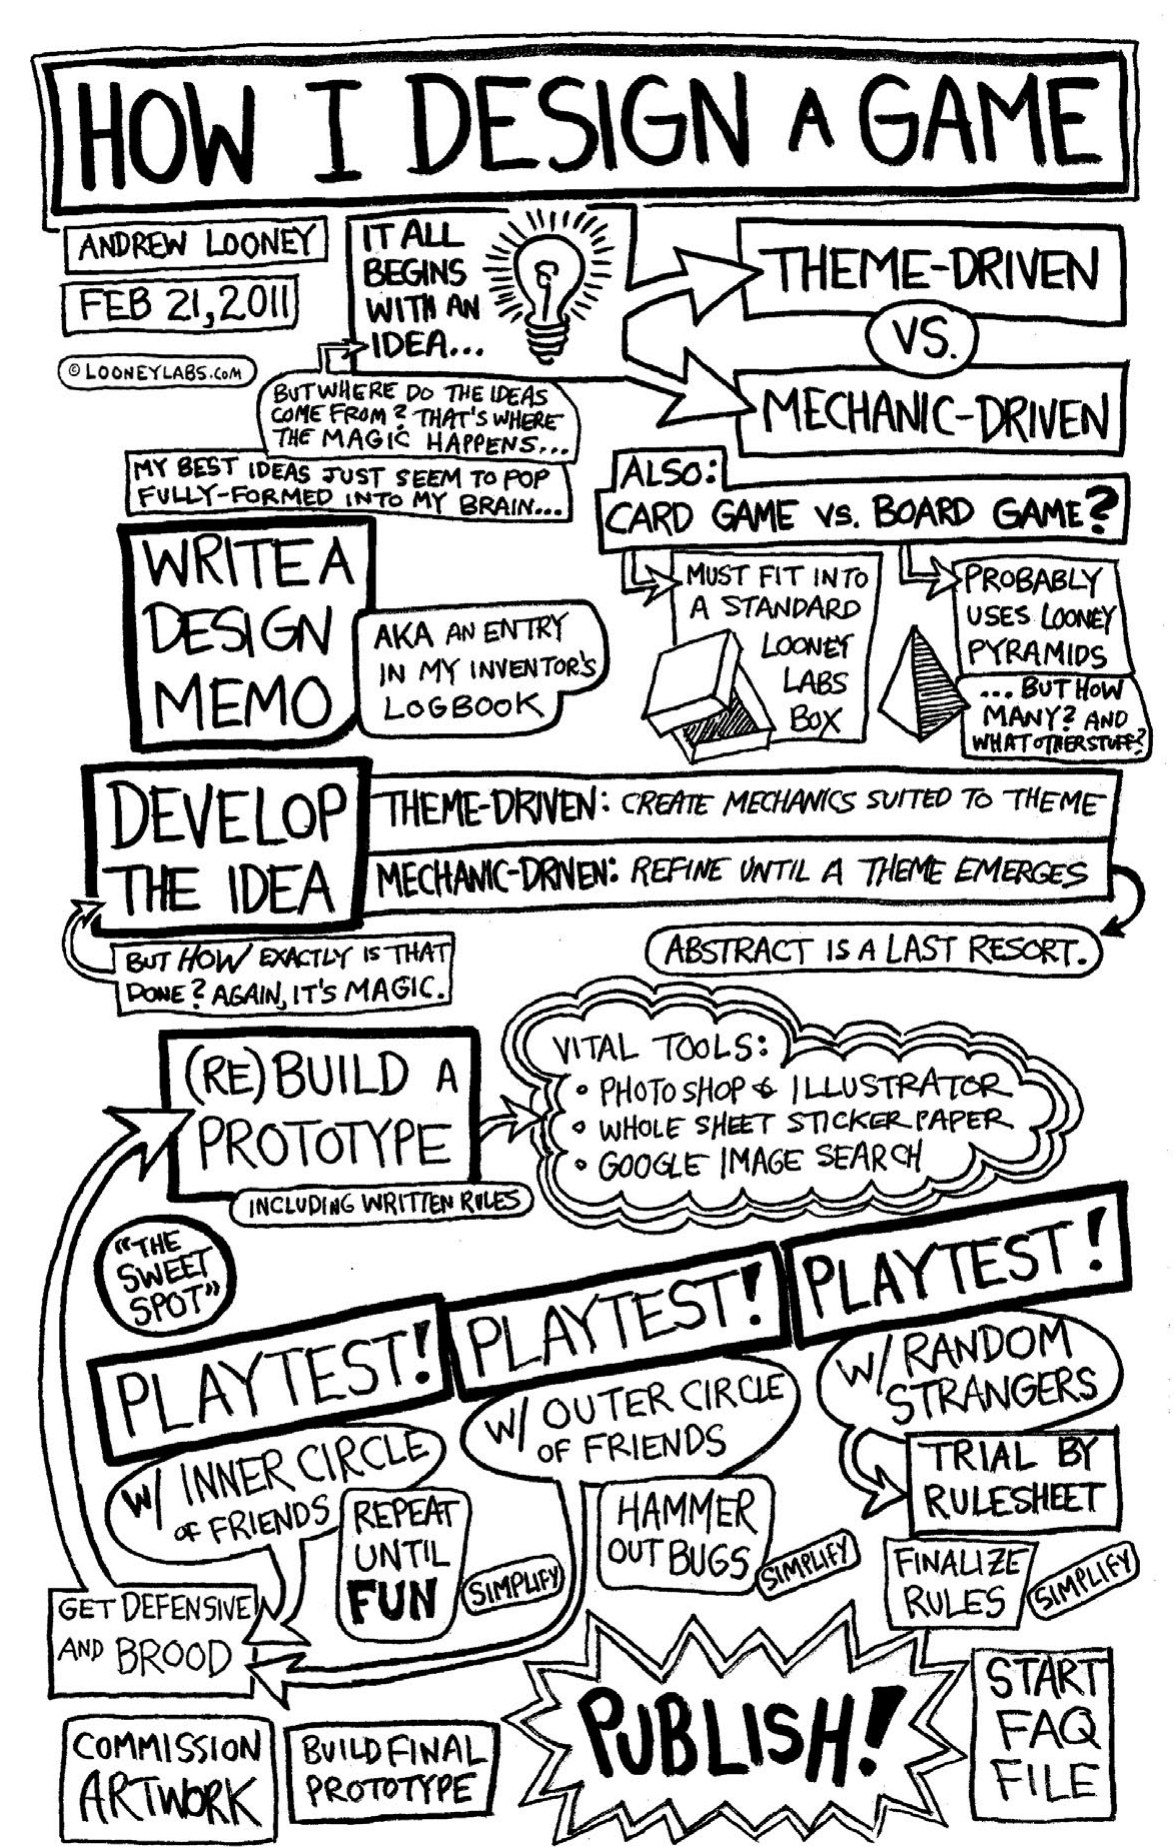 HOW I DESIGN A GAME
ANDREW LOONEY
FEB 21, 2011
© LOONEYLABS.COM
IT ALL
BEGINS
WITH AN
IDEA...
THEME-DRIVEN
VS.
MECHANIC-DRIVEN
BUT WHERE DO THE IDEAS
COME FROM? THAT'S WHERE
THE MAGIC HAPPENS...
MY BEST IDEAS JUST SEEM TO POP
FULLY-FORMED INTO MY BRAIN...
ALSO:
CARD GAME VS. BOARD GAME?
MUST FIT INTO
A STANDARD
LOONEY
LABS
BOX
PROBABLY
USES LOONEY
PYRAMIDS
... BUT HOW
MANY? AND
WHAT OTHER STUFF?
WRITE A
DESIGN
MEMO
AKA AN ENTRY
IN MY INVENTOR'S
LOGBOOK
DEVELOP
THE IDEA
THEME-DRIVEN: CREATE MECHANICS SUITED TO THEME
MECHANIC-DRIVEN: REFINE UNTIL A THEME EMERGES
ABSTRACT IS A LAST RESORT.
BUT HOW EXACTLY IS THAT
DONE? AGAIN, IT'S MAGIC.
(RE)BUILD A
PROTOTYPE
INCLUDING WRITTEN RULES
VITAL TOOLS:
• PHOTOSHOP & ILLUSTRATOR
• WHOLE SHEET STICKER PAPER
• GOOGLE IMAGE SEARCH
"THE
SWEET
SPOT"
PLAYTEST!
PLAYTEST!
PLAYTEST!
W/ INNER CIRCLE
OF FRIENDS
W/ OUTER CIRCLE
OF FRIENDS
W/ RANDOM
STRANGERS
REPEAT
UNTIL
FUN
SIMPLIFY
HAMMER
OUT BUGS
SIMPLIFY
TRIAL BY
RULESHEET
FINALIZE
RULES
SIMPLIFY
GET DEFENSIVE
AND BROOD
COMMISSION
ARTWORK
BUILD FINAL
PROTOTYPE
PUBLISH!
START
FAQ
FILE